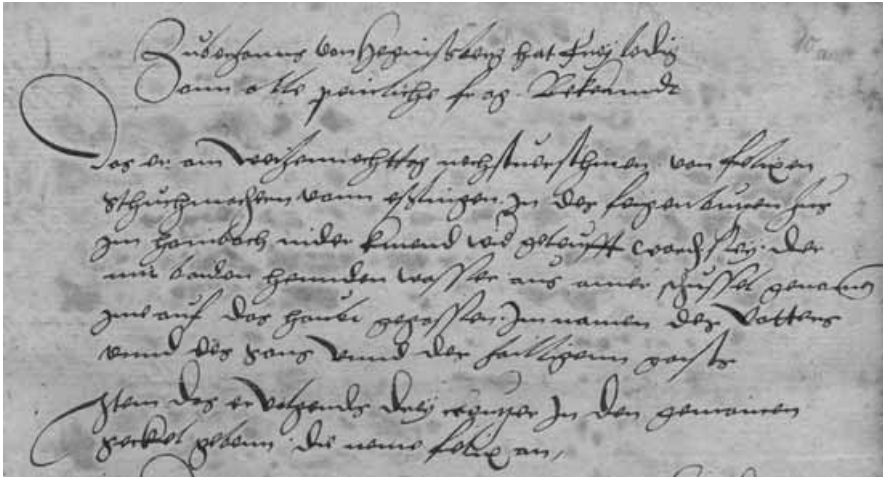 von hat frey ledig
one alle peinliche frag. Bekanndt
Das er am Weihennechttag nechstuerschinen. von felixen
Schuchmachern vonn esslingen. In des hus
Im hainbach nider kniend wid getaufft worden sey. der
mit baiden hennden wasser aus ainer schussel genomen
Ime auf das haubt gegossen. Im namen des Vatters
vnnd des Sons vnnd der hailligenn geists
Item das er volgends drey creutzer In den gemainen
Seckel gebenn. die neme felix an,